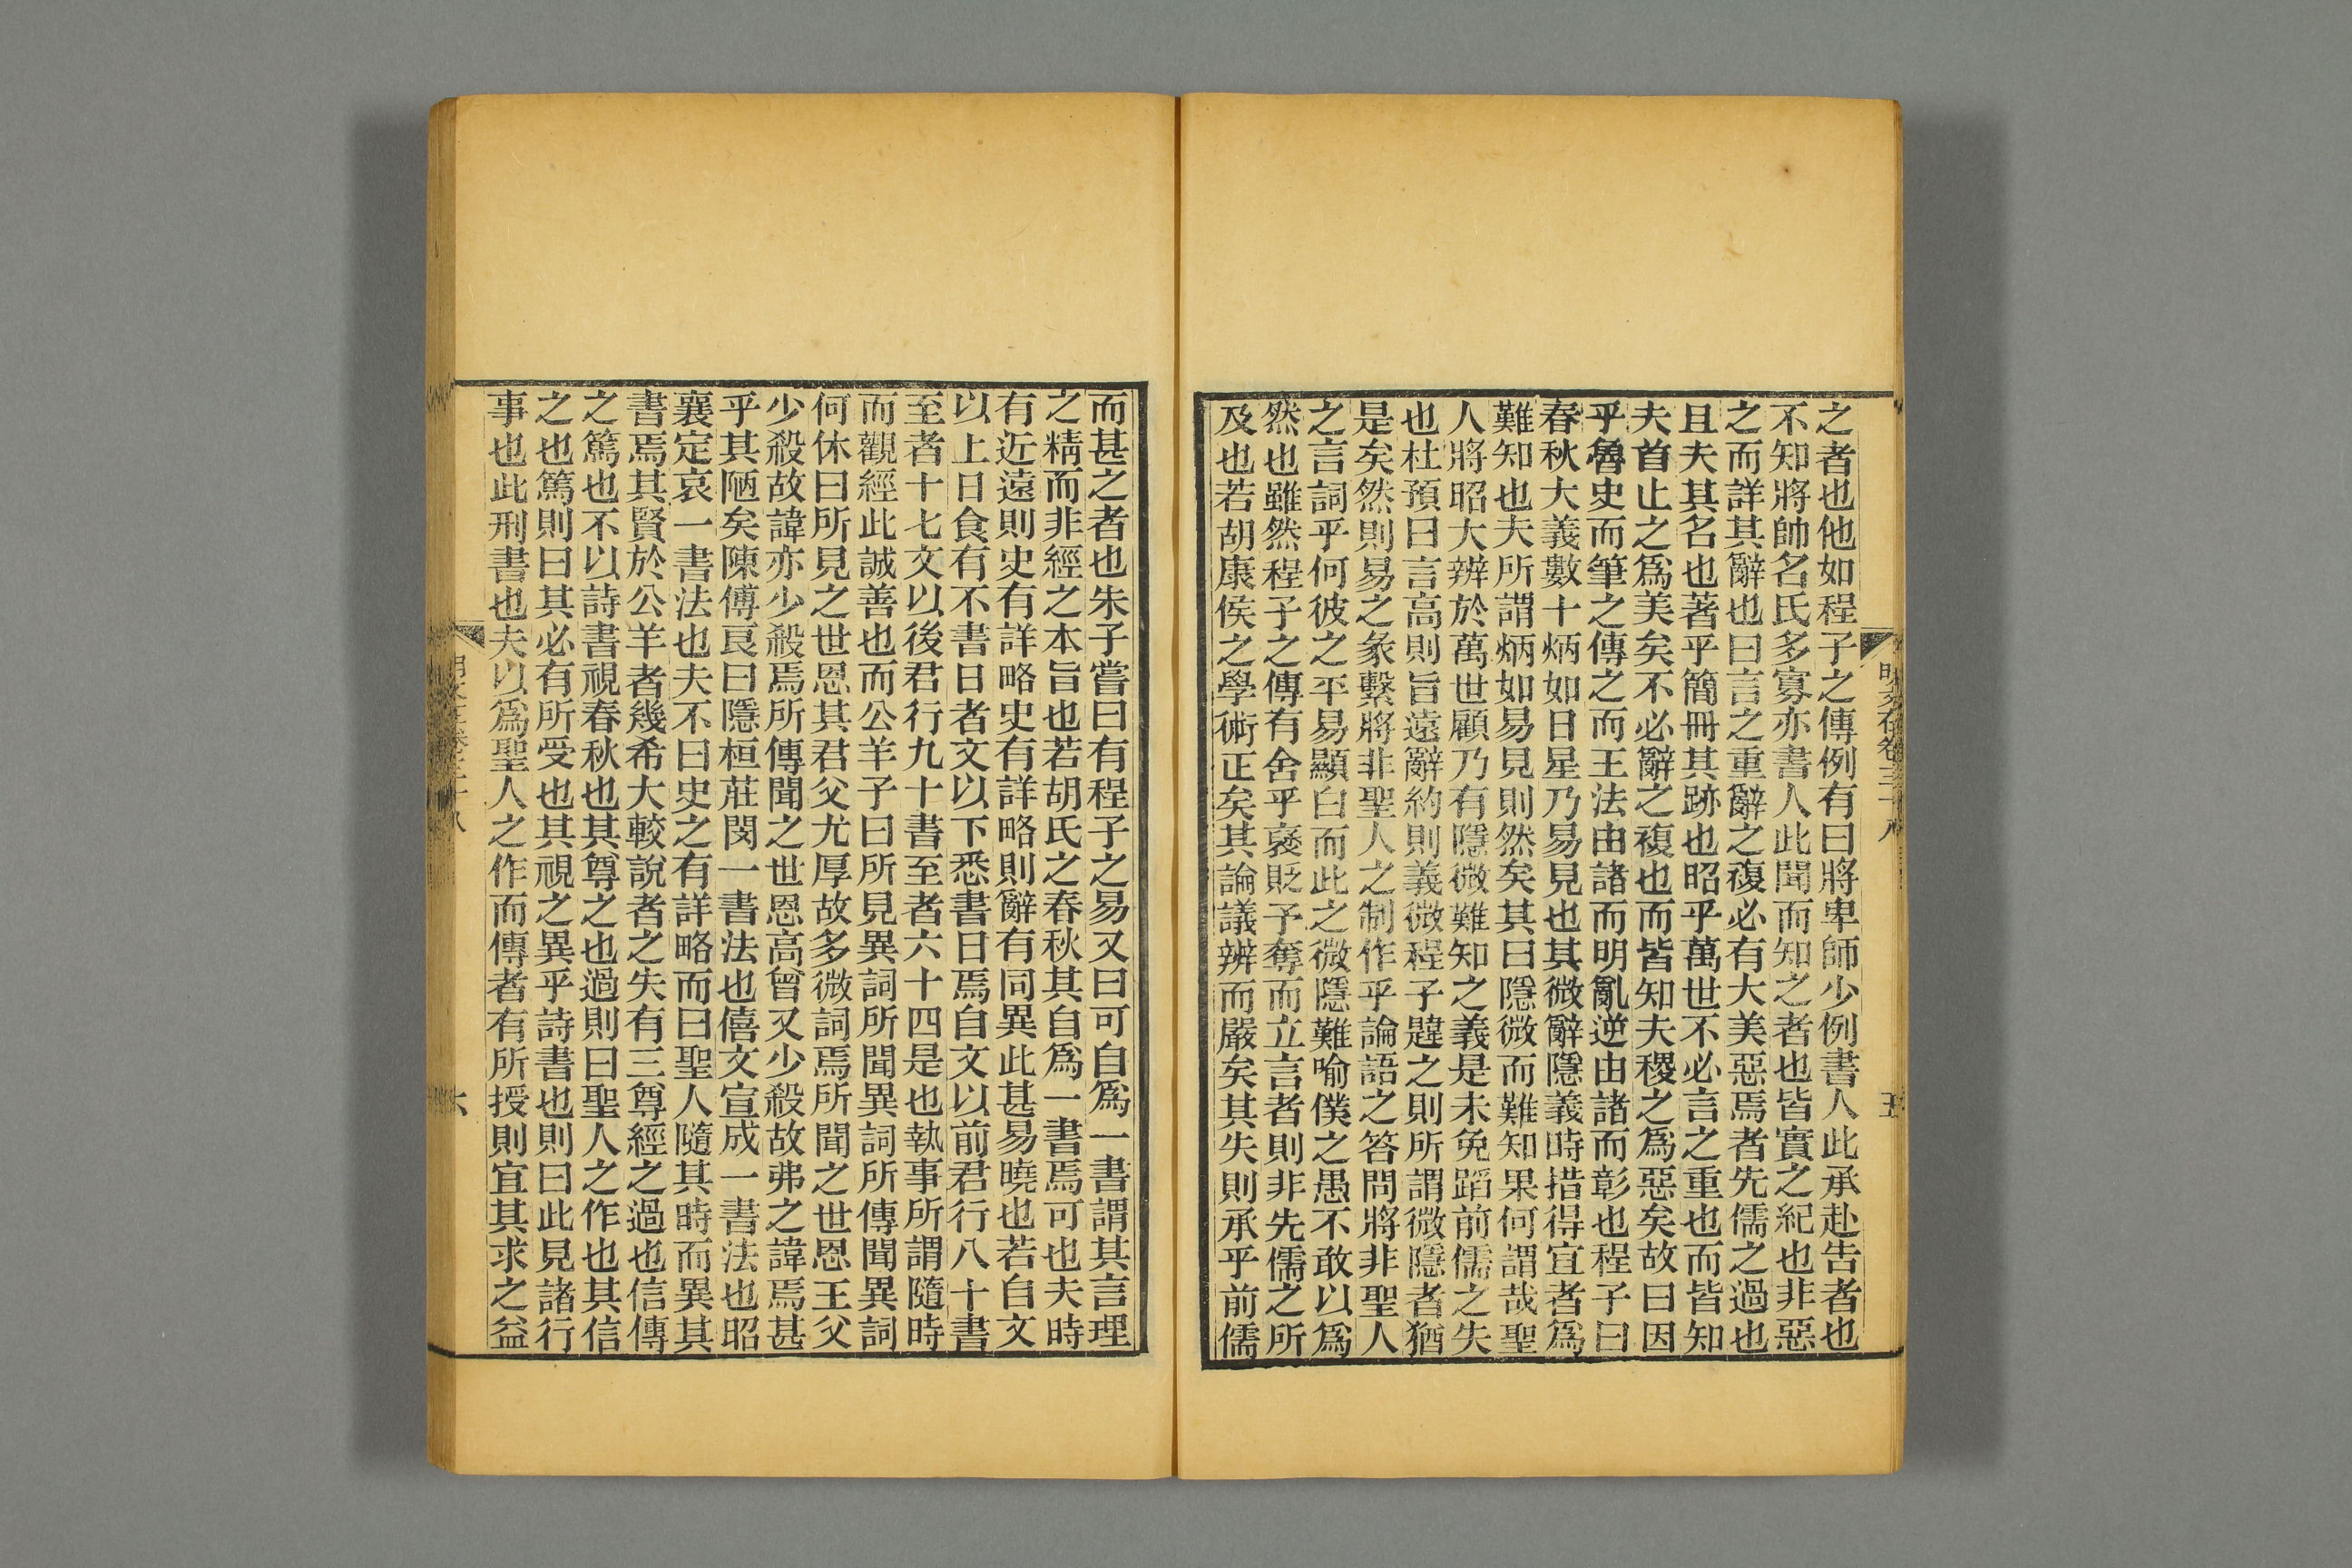 之者也他如程子之傳例有曰將卑師少例書人此承赴告者也
不知將帥名氏多寡亦書人此聞而知之者也皆實之紀也非惡
之而詳其辭也曰言之重辭之複必有大美惡焉者先儒之過也
且夫其名也著乎簡冊其跡也昭乎萬世不必言之重也而皆知
夫首止之為美矣不必辭之複也而皆知夫稷之為惡矣故曰因
乎魯史而筆之傳之而王法由諸而明亂逆由諸而彰也程子曰
春秋大義數十炳如日星乃易見也其微辭隱義時措得宜者為
難知也夫所謂炳如易見則然矣其曰隱微而難知果何謂哉聖
人將昭大辨於萬世顧乃有隱微難知之義是未免蹈前儒之失
也杜預曰言高則旨遠辭約則義微程子韙之則所謂微隱者猶
是矣然則易之彖繫將非聖人之制作乎論語之答問將非聖人
之言詞乎何彼之平易顯白而此之微隱難喻僕之愚不敢以為
然也雖然程子之傳有舍乎襃貶予奪而立言者則非先儒之所
及也若胡康侯之學術正矣其論議辨而嚴矣其失則承乎前儒
明文在卷三十八
五
而甚之者也朱子嘗曰有程子之易又曰可自為一書謂其言理
之精而非經之本旨也若胡氏之春秋其自為一書焉可也夫時
有近遠則史有詳略史有詳略則辭有同異此甚易曉也若自文
以上日食有不書日者文以下悉書日焉自文以前君行八十書
至者十七文以後君行九十書至者六十四是也執事所謂隨時
而觀經此誠善也而公羊子曰所見異詞所聞異詞所傳聞異詞
何休曰所見之世恩其君父尤厚故多微詞焉所聞之世恩王父
少殺故諱亦少殺焉所傳聞之世恩高曾又少殺故弗之諱焉甚
乎其陋矣陳傅良曰隱桓莊閔一書法也僖文宣成一書法也昭
襄定哀一書法也夫不曰史之有詳略而曰聖人隨其時而異其
書焉其賢於公羊者幾希大較說者之失有三尊經之過也信傳
之篤也不以詩書視春秋也其尊之也過則曰聖人之作也其信
之也篤則曰其必有所受也其視之異乎詩書也則曰此見諸行
事也此刑書也夫以為聖人之作而傳者有所授則宜其求之益
六